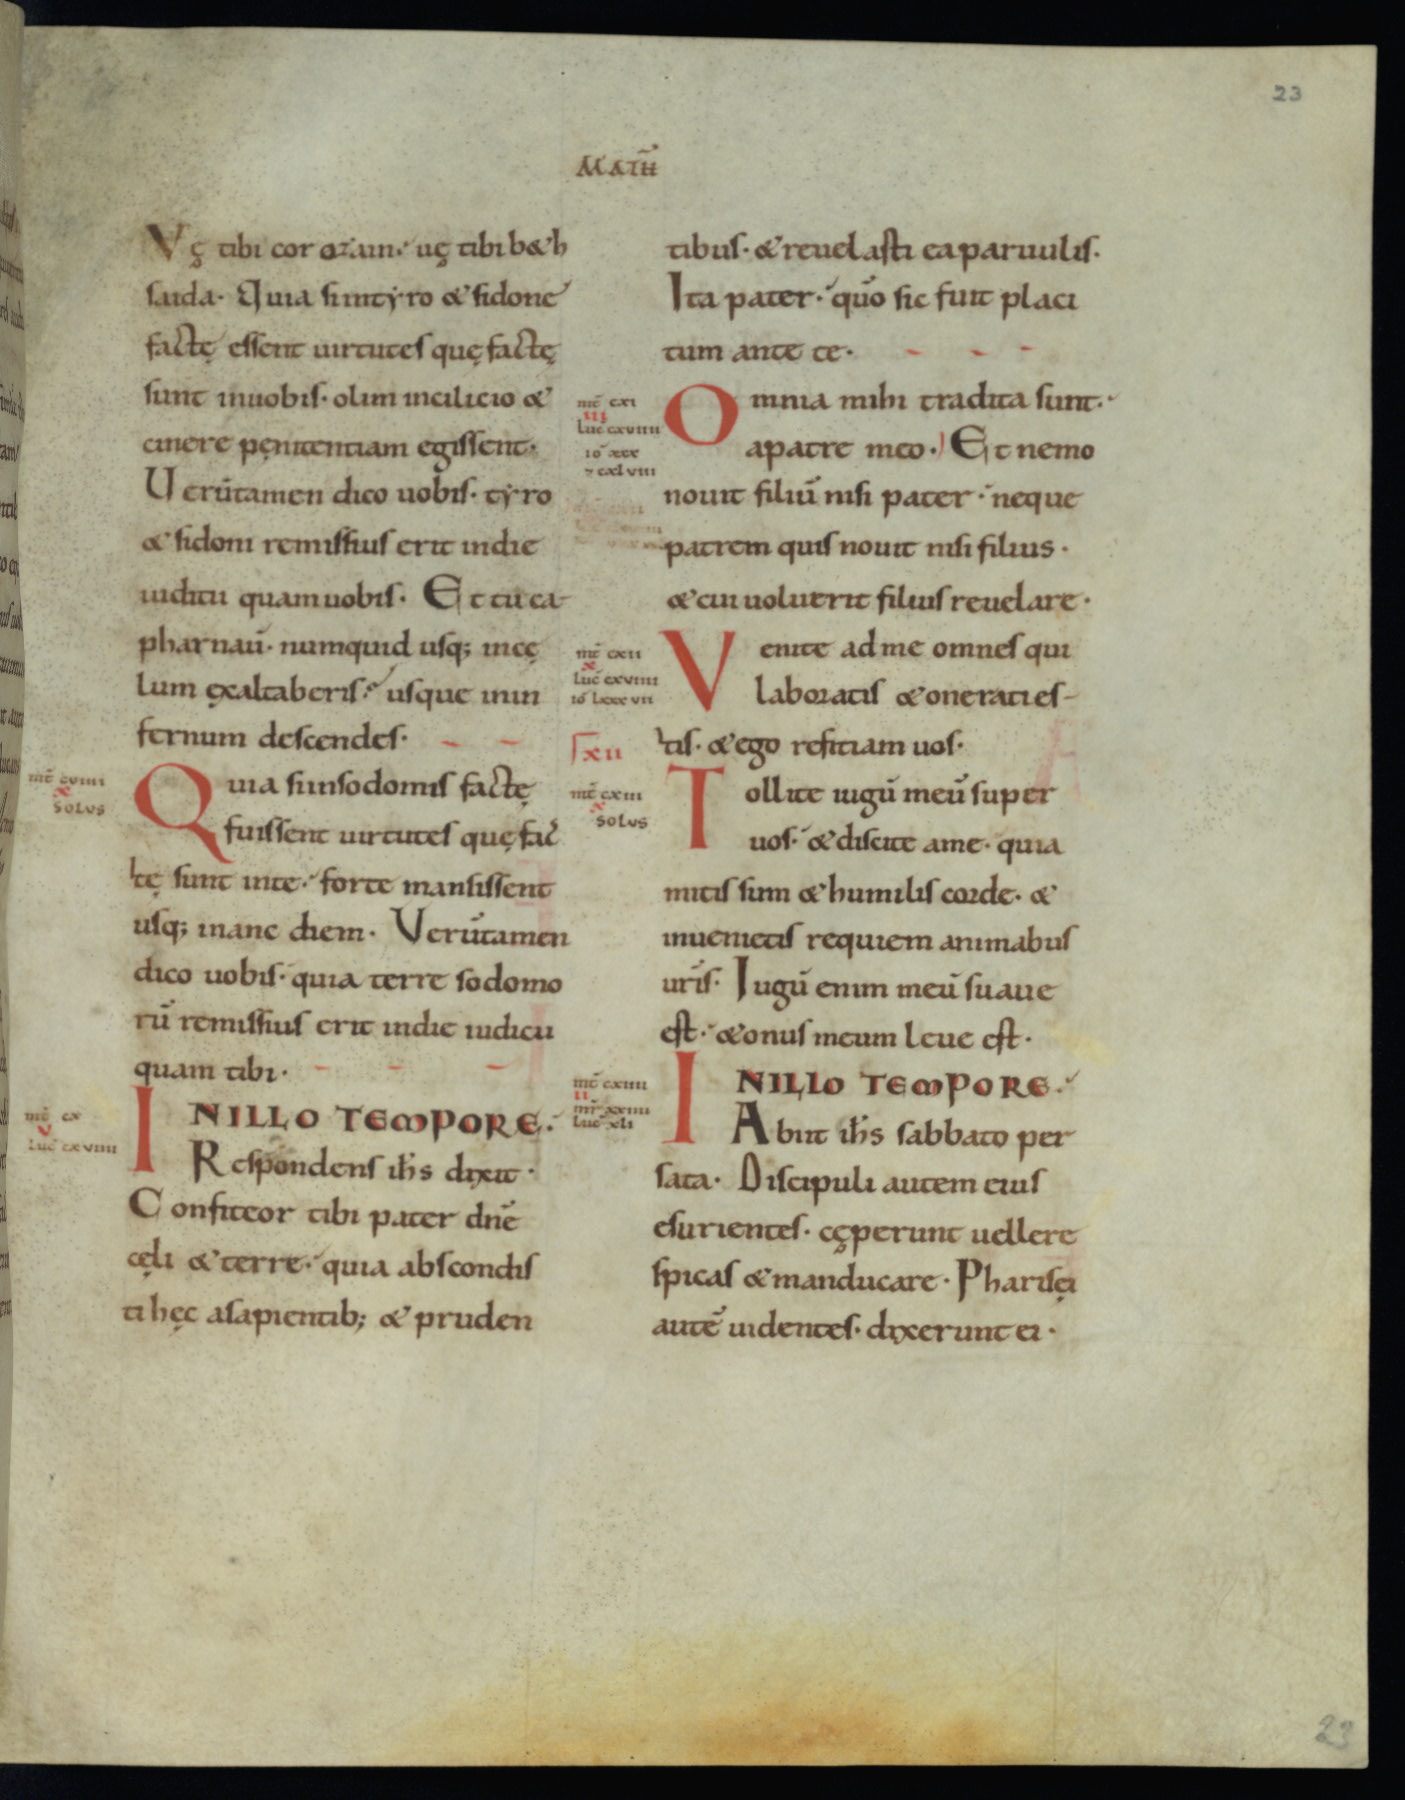 23
MATH̄
Vę tibi corozain. uę tibi beth
saida. Quia si in tyro et sidone
factę essent uirtutes quę factę
sunt inuobis. olim incilicio et
cinere pęnitentiam egissent.
Uerūtamen dico uobis. tyro
et sidoni remissius erit indie
iudicii quam uobis. Et tu ca
pharnaū. numquid usq; incę
lum ęxaltaberis? usque inin
fernum descendes.
mt̄ cviiii
x
solus
Quia si insodomis factę
fuissent uirtutes quę fac
tę sunt inte. forte mansissent
usq; inanc diem. Verūtamen
dico uobis. quia terre sodomo
rū remissius erit indie iudicii
quam tibi.
mt̄ cx
v
luc̄ cxviiii
INILLO TEMPORE.
Respondens ih̄s dixit.
Confiteor tibi pater dn̄e
cęli et terre. quia abscondis
ti hęc asapientib; et pruden
tibus. et reuelasti ea paruulis.
Ita pater. quō sic fuit placi
tum ante te.
mt̄ cxi
iii
luc̄ cxviiii
io xxx
7 cxlviii
Omnia mihi tradita sunt.
apatre meo. Et nemo
nouit filiū nisi pater. neque
patrem quis nouit nisi filius.
et cui uoluerit filius reuelare.
mt̄ cxii
x
luc̄ cxviiii
io lxxxvii
Venite ad me omnes qui
laboratis et oneraties-
tis. et ego reficiam uos.
xii
mt̄ cxiii
x
solus
Tollite iugū meū super
uos. et discite ame. quia
mitis sum et humilis corde. et
inuenietis requiem animabus
ur̄is. Iugū enim meū suaue
est. et onus meum leue est.
mt̄ cxiiii
ii
mr̄ xxiiii
luc̄ xli
INILLO TEMPORE.
Abiit ih̄s sabbato per
sata. Discipuli autem eius
esurientes. cęperunt uellere
spicas et manducare. Pharisęi
autē uidentes. dixerunt ei.
23